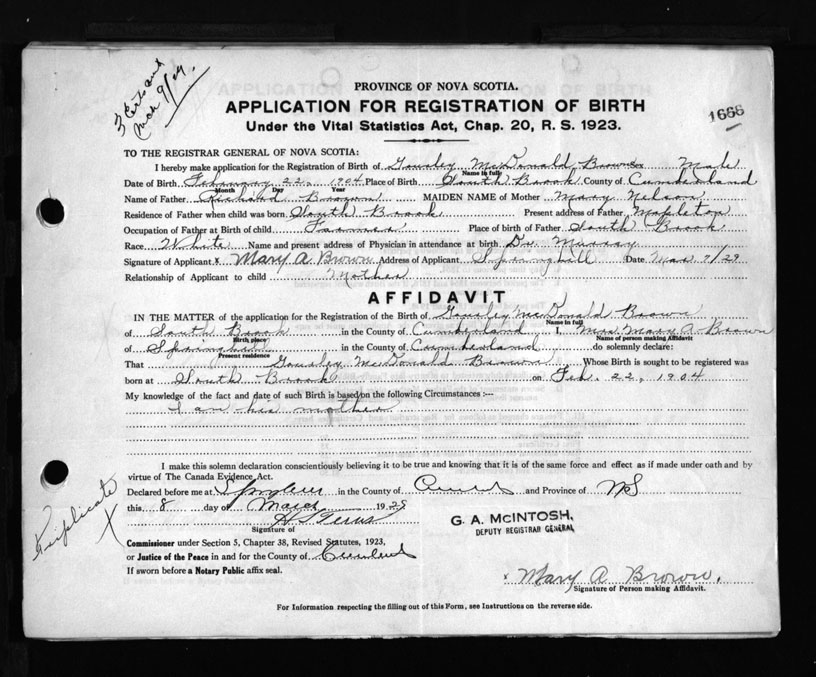 PROVINCE OF NOVA SCOTIA.
APPLICATION FOR REGISTRATION OF BIRTH
Under the Vital Statistics Act, Chap. 20, R. S. 1923.
1666
TO THE REGISTRAR GENERAL OF NOVA SCOTIA:
I hereby make application for the Registration of Birth of Gousley McDonald Brown Sex Male
Name in full
Date of Birth February 22, 1904 Place of Birth South Brook County of Cumberland
Month Day Year
Name of Father Richard Brown MAIDEN NAME of Mother Mary Nelson
Residence of Father when child was born South Brook Present address of Father Mapleton
Occupation of Father at Birth of child Farmer Place of birth of Father South Brook
Race White Name and present address of Physician in attendance at birth Dr Murray
Signature of Applicant x Mary A Brown Address of Applicant Springhill Date Mar 7/29
Relationship of Applicant to child Mother
AFFIDAVIT
IN THE MATTER of the application for the Registration of the Birth of Gousley McDonald Brown
Name in full
of South Brook in the County of Cumberland I, Mrs Mary A Brown
Birth place Name of person making Affidavit
of Springhill in the County of Cumberland do solemnly declare:
Present residence
That Gousley McDonald Brown Whose Birth is sought to be registered was
born at South Brook on Feb. 22, 1904
My knowledge of the fact and date of such Birth is based on the following Circumstances :—
I am his mother
I make this solemn declaration conscientiously believing it to be true and knowing that it is of the same force and effect as if made under oath and by
virtue of The Canada Evidence Act.
Declared before me at in the County of and Province of NS
this 8 day of March 1929
Signature of
G. A. McINTOSH,
DEPUTY REGISTRAR GENERAL
Commissioner under Section 5, Chapter 38, Revised Statutes, 1923,
or Justice of the Peace in and for the County of
If sworn before a Notary Public affix seal.
x Mary A Brown.
Signature of Person making Affidavit.
For Information respecting the filling out of this Form, see Instructions on the reverse side.
Triplicate
X